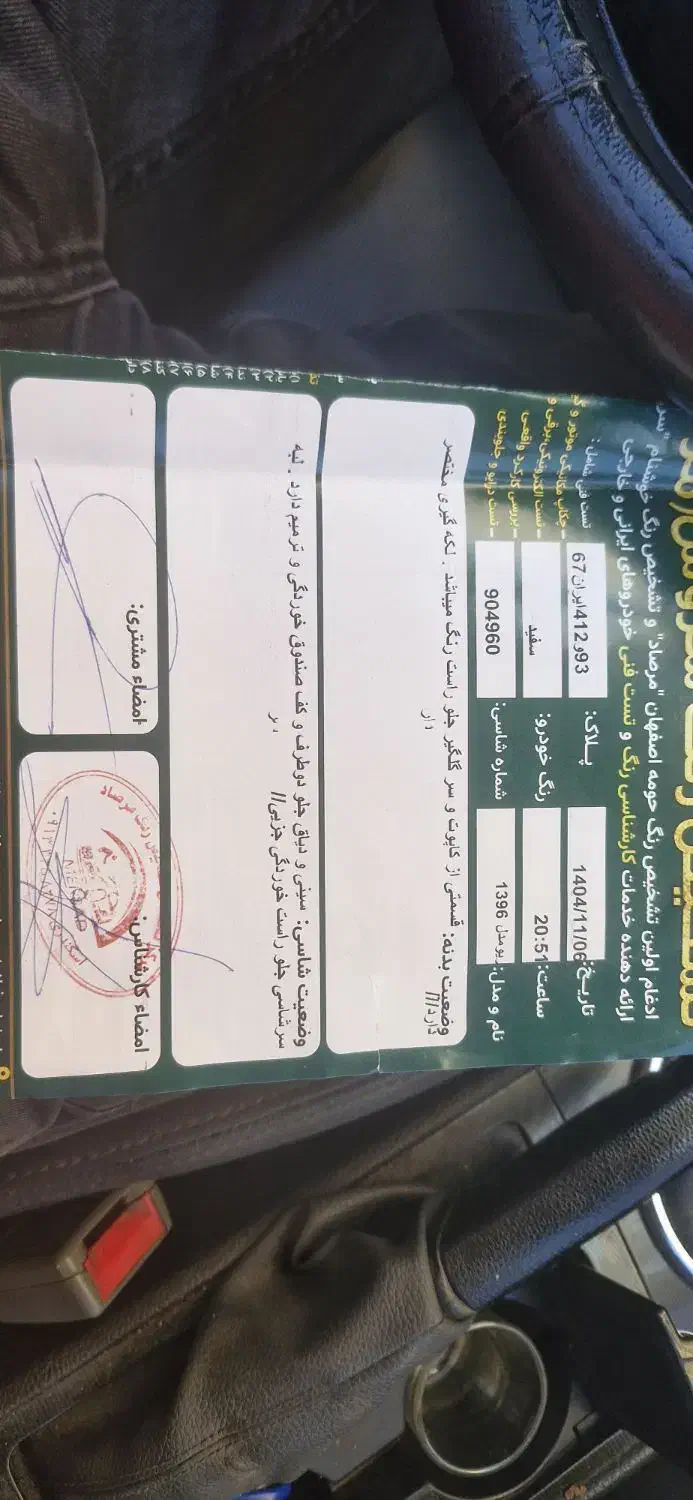 ادغام اولین تشخیص رنگ حومه اصفهان "مرصاد" و تشخیص رنگ خوشنام "سر
ارائه دهنده خدمات کارشناسی رنگ و تست فنی خودروهای ایرانی و خارجی
تاریخ: 1404/11/06
پلاک: 93و412ایران67
تست فنی شامل:
ساعت: 20:51
رنگ خودرو: سفید
نام و مدل: ریو مدل 1396
شماره شاسی: 904960
_ چکاپ مکانیکی موتور و گی
_ تست الکترونیکی،برقی و
_ بررسی کارکرد واقعی
_ تست درایو و جلوبندی
وضعیت بدنه: قسمتی از کاپوت و سر گلگیر جلو راست رنگ میباشد . لکه گیری مختصر
دارد///
وضعیت شاسی: سینی و دیاق جلو دوطرف و کف صندوق خوردگی و ترمیم دارد . لبه
سرشاسی جلو راست خوردگی جزیی//
امضاء کارشناس:
امضاء مشتری: